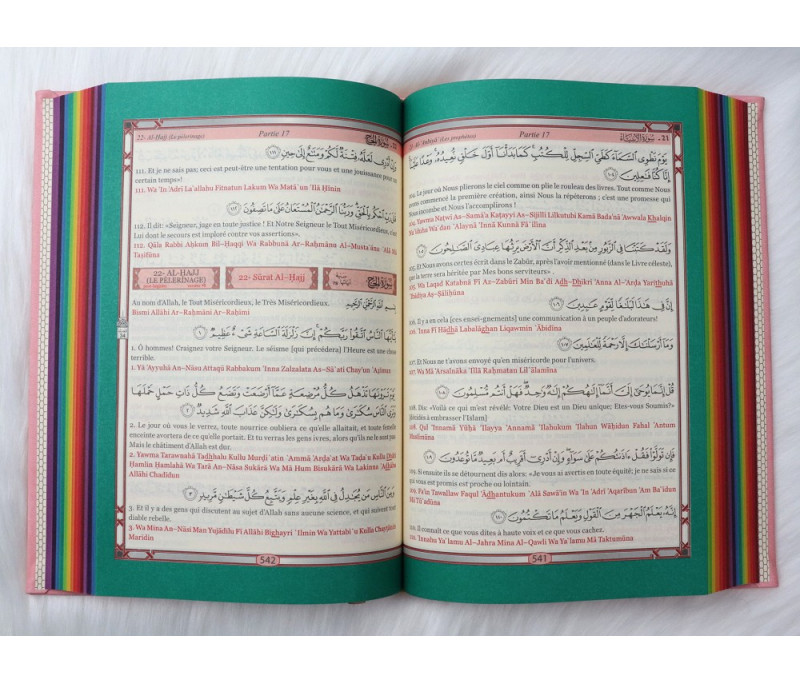 21- Al-'Anbiyâ' (Les prophètes) Partie 17 21- سورة الأنبياء
يَوْمَ نَطْوِي السَّمَاءَ كَطَيِّ السِّجِلِّ لِلْكُتُبِ كَمَا بَدَأْنَا أَوَّلَ خَلْقٍ نُّعِيدُهُ وَعْدًا عَلَيْنَا
إِنَّا كُنَّا فَاعِلِينَ ١٠٤
104. Le jour où Nous plierons le ciel comme on plie le rouleau des livres. Tout comme Nous
avons commencé la première création, ainsi Nous la répéterons; c'est une promesse qui
Nous incombe et Nous l'accomplirons!
104. Yawma Naţwi As-Samā'a Kaţayyi As-Sijilli Lilkutubi Kamā Bada'nā 'Awwala Khalqin
Nu`īduhu Wa`dan `Alaynā 'Innā Kunnā Fā`ilīna
وَلَقَدْ كَتَبْنَا فِي الزَّبُورِ مِنْ بَعْدِ الذِّكْرِ أَنَّ الْأَرْضَ يَرِثُهَا عِبَادِيَ الصَّالِحُونَ ١٠٥
105. Et Nous avons certes écrit dans le Zabūr, après l'avoir mentionné (dans le Livre céleste),
que la terre sera héritée par Mes bons serviteurs».
105. Wa Laqad Katabnā Fī Az-Zabūri Min Ba`di Adh-Dhikri 'Anna Al-'Arđa Yarithuhā
`Ibādiya Aş-Şāliĥūna
إِنَّ فِي هَٰذَا لَبَلَاغًا لِّقَوْمٍ عَابِدِينَ ١٠٦
106. Il y a en cela [ces enseignements] une communication à un peuple d'adorateurs!
106. 'Inna Fī Hādhā Labalāghan Liqawmin `Ābidīna
وَمَا أَرْسَلْنَاكَ إِلَّا رَحْمَةً لِّلْعَالَمِينَ ١٠٧
107. Et Nous ne t'avons envoyé qu'en miséricorde pour l'univers.
107. Wa Mā 'Arsalnāka 'Illā Raĥmatan Lil`ālamīna
قُلْ إِنَّمَا يُوحَىٰ إِلَيَّ أَنَّمَا إِلَٰهُكُمْ إِلَٰهٌ وَاحِدٌ فَهَلْ أَنتُم مُّسْلِمُونَ ١٠٨
108. Dis: «Voilà ce qui m'est révélé: Votre Dieu est un Dieu unique; Etes-vous Soumis?»
[décidés à embrasser l'Islam]
108. Qul 'Innamā Yūĥá 'Ilayya 'Annamā 'Ilahukum 'Ilahun Wāĥidun Fahal 'Antum
Muslimūna
فَإِن تَوَلَّوْا فَقُلْ آذَنتُكُمْ عَلَىٰ سَوَاءٍ وَإِنْ أَدْرِي أَقَرِيبٌ أَم بَعِيدٌ مَّا تُوعَدُونَ ١٠٩
109. Si ensuite ils se détournent dis alors: «Je vous ai avertis en toute équité; je ne sais si ce
qui vous est promis est proche ou lointain.
109. Fa'in Tawallaw Faqul 'Ādhantukum `Alá Sawā'in Wa 'In 'Adrī 'Aqarībun 'Am Ba`īdun
Mā Tū`adūna
إِنَّهُ يَعْلَمُ الْجَهْرَ مِنَ الْقَوْلِ وَيَعْلَمُ مَا تَكْتُمُونَ ١١٠
110. Il connaît ce que vous dites à haute voix et ce que vous cachez.
110. 'Innahu Ya`lamu Al-Jahra Mina Al-Qawli Wa Ya`lamu Mā Taktumūna
541
22- Al-Ĥajj (Le pèlerinage) Partie 17 22- سورة الحج
وَإِنْ أَدْرِي لَعَلَّهُ فِتْنَةٌ لَّكُمْ وَمَتَاعٌ إِلَىٰ حِينٍ ١١١
111. Et je ne sais pas; ceci est peut-être une tentation pour vous et une jouissance pour un
certain temps»!
111. Wa 'In 'Adrī La`allahu Fitnatun Lakum Wa Matā`un 'Ilá Ĥīnin
قَالَ رَبِّ احْكُم بِالْحَقِّ وَرَبُّنَا الرَّحْمَٰنُ الْمُسْتَعَانُ عَلَىٰ مَا تَصِفُونَ ١١٢
112. Il dit: «Seigneur, juge en toute justice! Et Notre Seigneur le Tout Miséricordieux, c'est
Lui dont le secours est imploré contre vos assertions».
112. Qāla Rabbi Aĥkum Bil-Ĥaqqi Wa Rabbunā Ar-Raĥmānu Al-Musta`ānu `Alá Mā
Taşifūna
22- AL-ĤAJJ
(LE PÈLERINAGE)
22- Sūrat Al-Ĥajj
سورة الحج
Au nom d'Allah, le Tout Miséricordieux, le Très Miséricordieux. بِسْمِ اللَّهِ الرَّحْمَٰنِ الرَّحِيمِ
Bismi Allāhi Ar-Raĥmāni Ar-Raĥīmi
يَا أَيُّهَا النَّاسُ اتَّقُوا رَبَّكُمْ إِنَّ زَلْزَلَةَ السَّاعَةِ شَيْءٌ عَظِيمٌ ١
1. Ô hommes! Craignez votre Seigneur. Le séisme [qui précédera] l'Heure est une chose
terrible.
1. Yā 'Ayyuhā An-Nāsu Attaqū Rabbakum 'Inna Zalzalata As-Sā`ati Shay'un `Ažīmun
يَوْمَ تَرَوْنَهَا تَذْهَلُ كُلُّ مُرْضِعَةٍ عَمَّا أَرْضَعَتْ وَتَضَعُ كُلُّ ذَاتِ حَمْلٍ حَمْلَهَا
وَتَرَى النَّاسَ سُكَارَىٰ وَمَا هُم بِسُكَارَىٰ وَلَٰكِنَّ عَذَابَ اللَّهِ شَدِيدٌ ٢
2. Le jour où vous le verrez, toute nourrice oubliera ce qu'elle allaitait, et toute femelle
enceinte avortera de ce qu'elle portait. Et tu verras les gens ivres, alors qu'ils ne le sont pas.
Mais le châtiment d'Allah est dur.
2. Yawma Tarawnahā Tadhhalu Kullu Murđi`atin `Ammā 'Arđa`at Wa Tađa`u Kullu Dhāti
Ĥamlin Ĥamlahā Wa Tará An-Nāsa Sukārá Wa Mā Hum Bisukārá Wa Lakinna `Adhāba
Allāhi Shadīdun
وَمِنَ النَّاسِ مَن يُجَادِلُ فِي اللَّهِ بِغَيْرِ عِلْمٍ وَيَتَّبِعُ كُلَّ شَيْطَانٍ مَّرِيدٍ ٣
3. Et il y a des gens qui discutent au sujet d'Allah sans aucune science, et qui suivent tout
diable rebelle.
3. Wa Mina An-Nāsi Man Yujādilu Fī Allāhi Bighayri `Ilmin Wa Yattabi`u Kulla Shayţānin
Marīdin
542